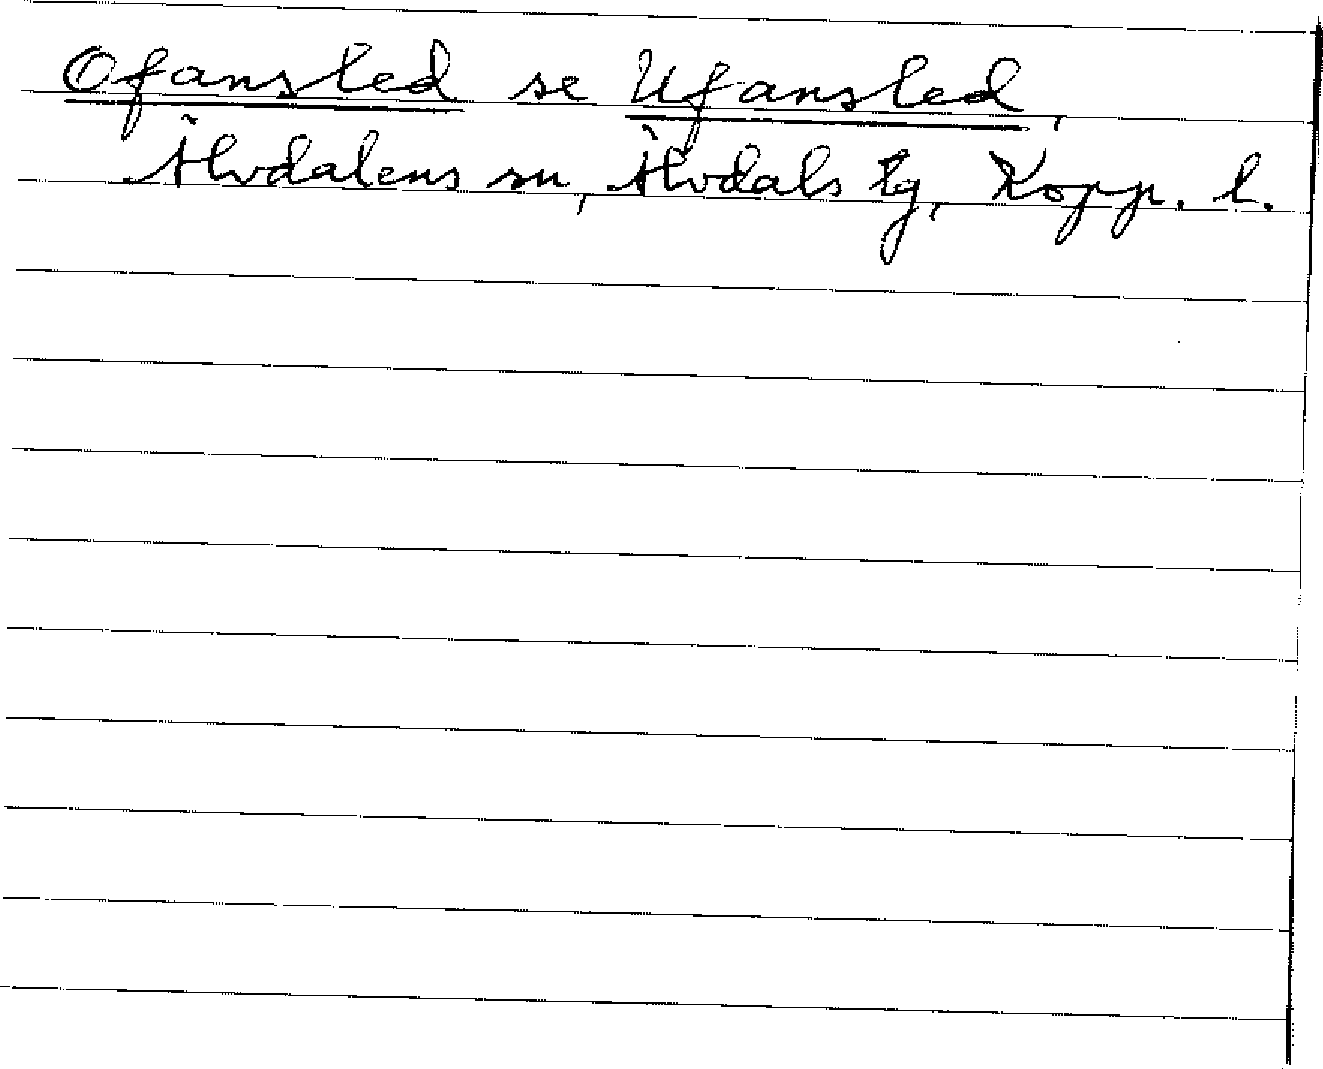 Ofansled se Ufansled,
Älvdalens sn, Älvdals tg, Kopp. l.